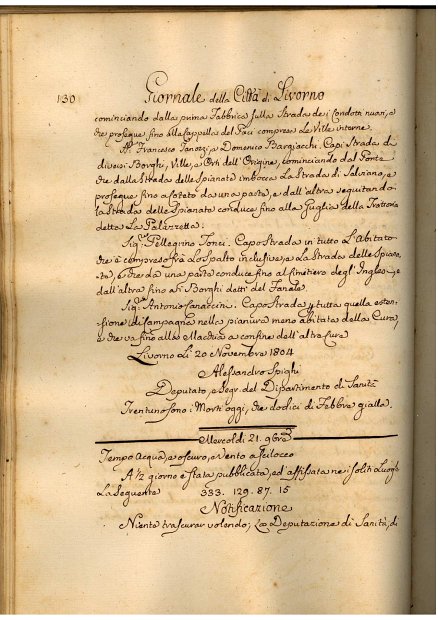 130 Giornale della Città di Livorno
cominciando dalla prima Fabbrica sulla Strada dei Condotti nuovi, e
che prosegue fino alla Cappella del Poci comprese le Ville interne.
Francesco Tanozzi, e Domenico Bargiacchi. Capi Strada di
diversi Borghi, Ville, e Orti dell'Origine, cominciando dal Ponte
che dalla Strada delle Spianate imbocca la Strada di Salviano, e
prosegue fino a Coteto da una parte, e dall'altra seguitando
la Strada delle Spianate conduce fino alla Guglia della Trattoria
detta La Palazzetta:
Sig.re Pellegrino Tonci. Capo Strada in tutto L'Abitato
che è compreso frà Lo Spalto inclusive, e La Strada delle Spiana
te, e che da una parte conduce fino al Cimitero degl'Inglesi, e
dall'altra fino ai Borghi detti del Fanale.
Sig.re Antonio Canaccini: Capo Strada p tutta quella esten-
sione di Campagna nella pianura meno abitata della Cura,
e che va fino alla Macchia a confine dell'altra Cura
Livorno Li 20 Novembre 1804
Alessandro Spighi
Deputato, e Segr. del Dipartimento di Sanità
Trentuno sono i Morti oggi, che dodici di Febbre gialla.
Mercoldì 21. 9bre
Tempo Acqua, e oscuro, e Vento a Scilocco
A ½ giorno è stata pubblicata, ed affissata nei soliti Luoghi
La Seguente 333. 129. 87. 15
Notificazione
Niente trascurar volendo; La Deputazione di Sanità, di